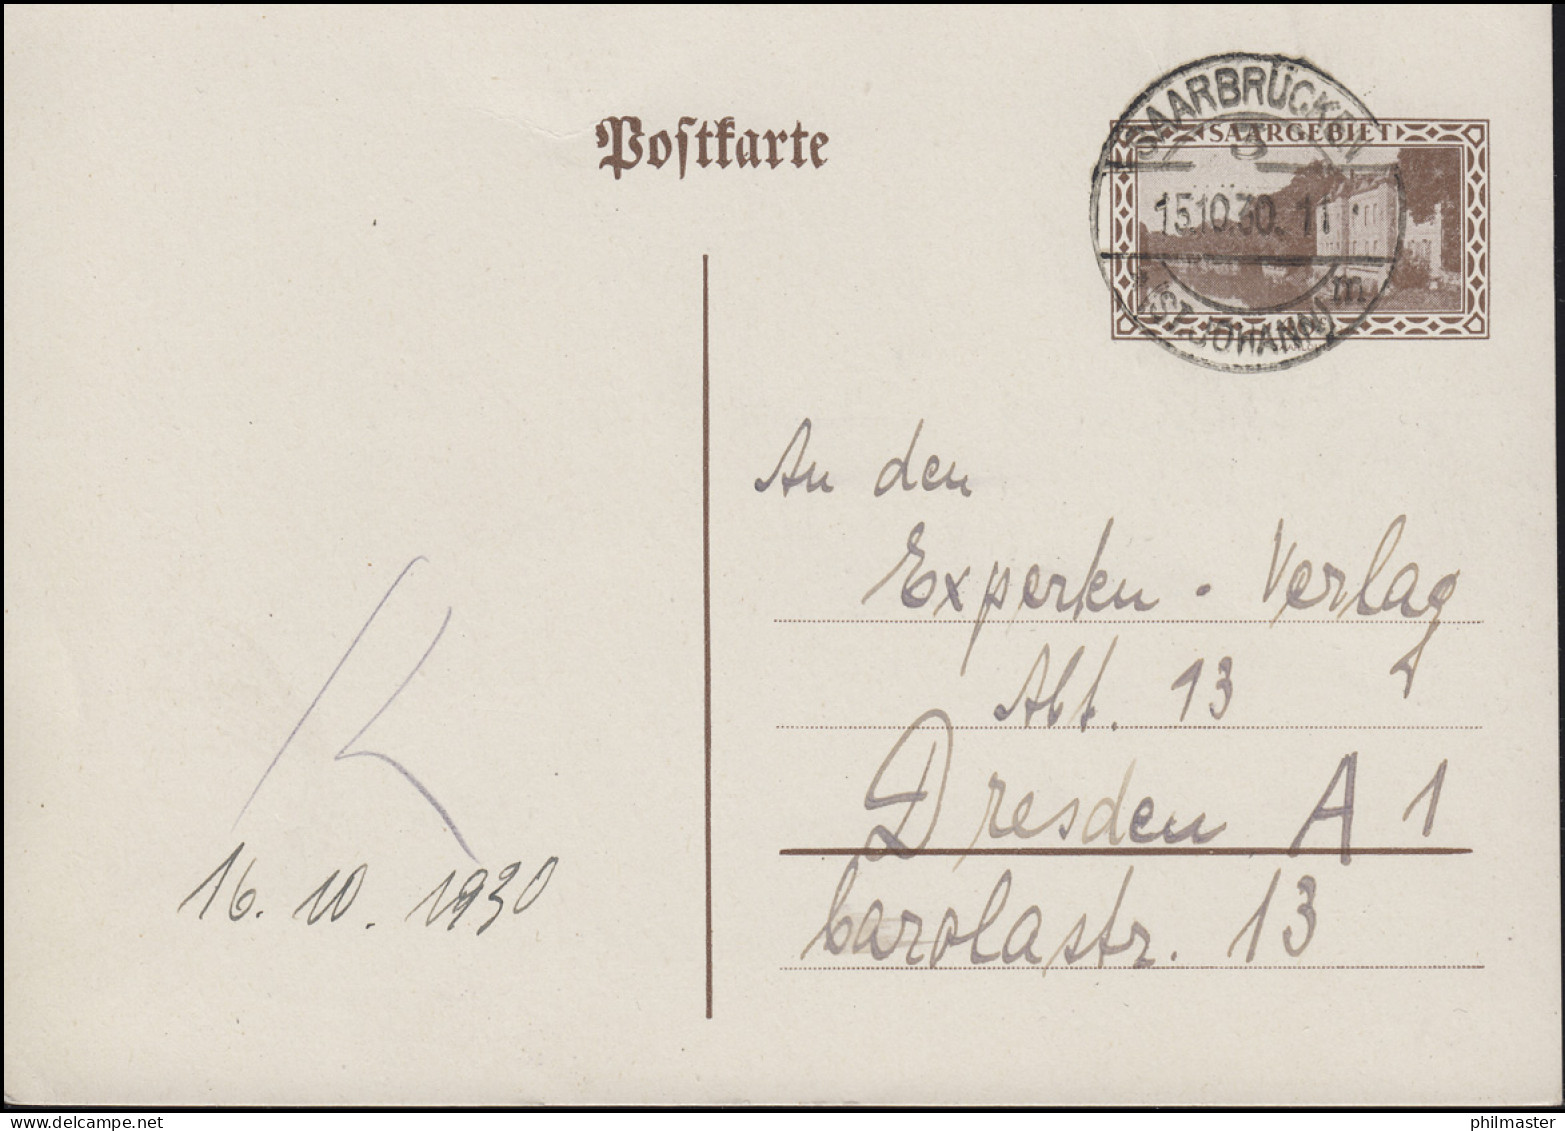 Postkarte
SAARGEBIET
SAARBRÜCKEN
3
15.10.30. 11
m
(ST. JOHANN)
An den
Experten-Verlag
Abt. 13
Dresden A 1
Carolastr. 13
16. 10. 1930
philmaster